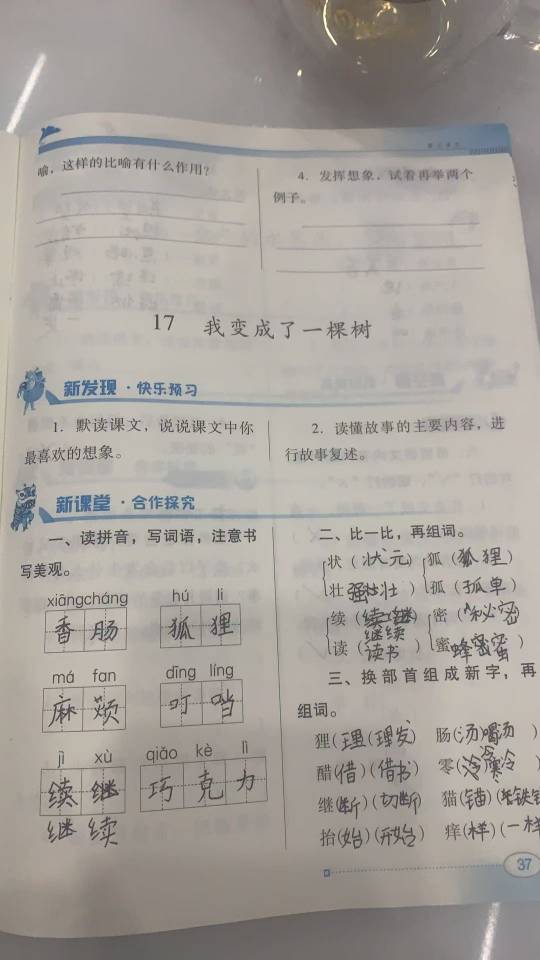 喻，这样的比喻有什么作用？
4. 发挥想象，试着再举两个
例子。
17 我变成了一棵树
新发现·快乐预习
1. 默读课文，说说课文中你
最喜欢的想象。
2. 读懂故事的主要内容，进
行故事复述。
新课堂·合作探究
一、读拼音，写词语，注意书
写美观。
xiāngcháng hú li
香肠 狐狸
má fan dīng líng
麻烦 叮
jì xù qiǎo kè lì
续继 巧克力
继续
二、比一比，再组词。
状（状元） 狐（狐狸）
壮 强壮） 孤（孤单）
续（ ） 密（秘密
继续
读（读书） 蜜 蜂蜜）
三、换部首组成新字，再
组词。
狸(理)(理发) 肠(汤)(喝汤)
醋(借)(借书) 零(冷)(寒冷
继(断)(切断) 猫(锚)(
抬(始)(开始) 痒(样)(一样
37